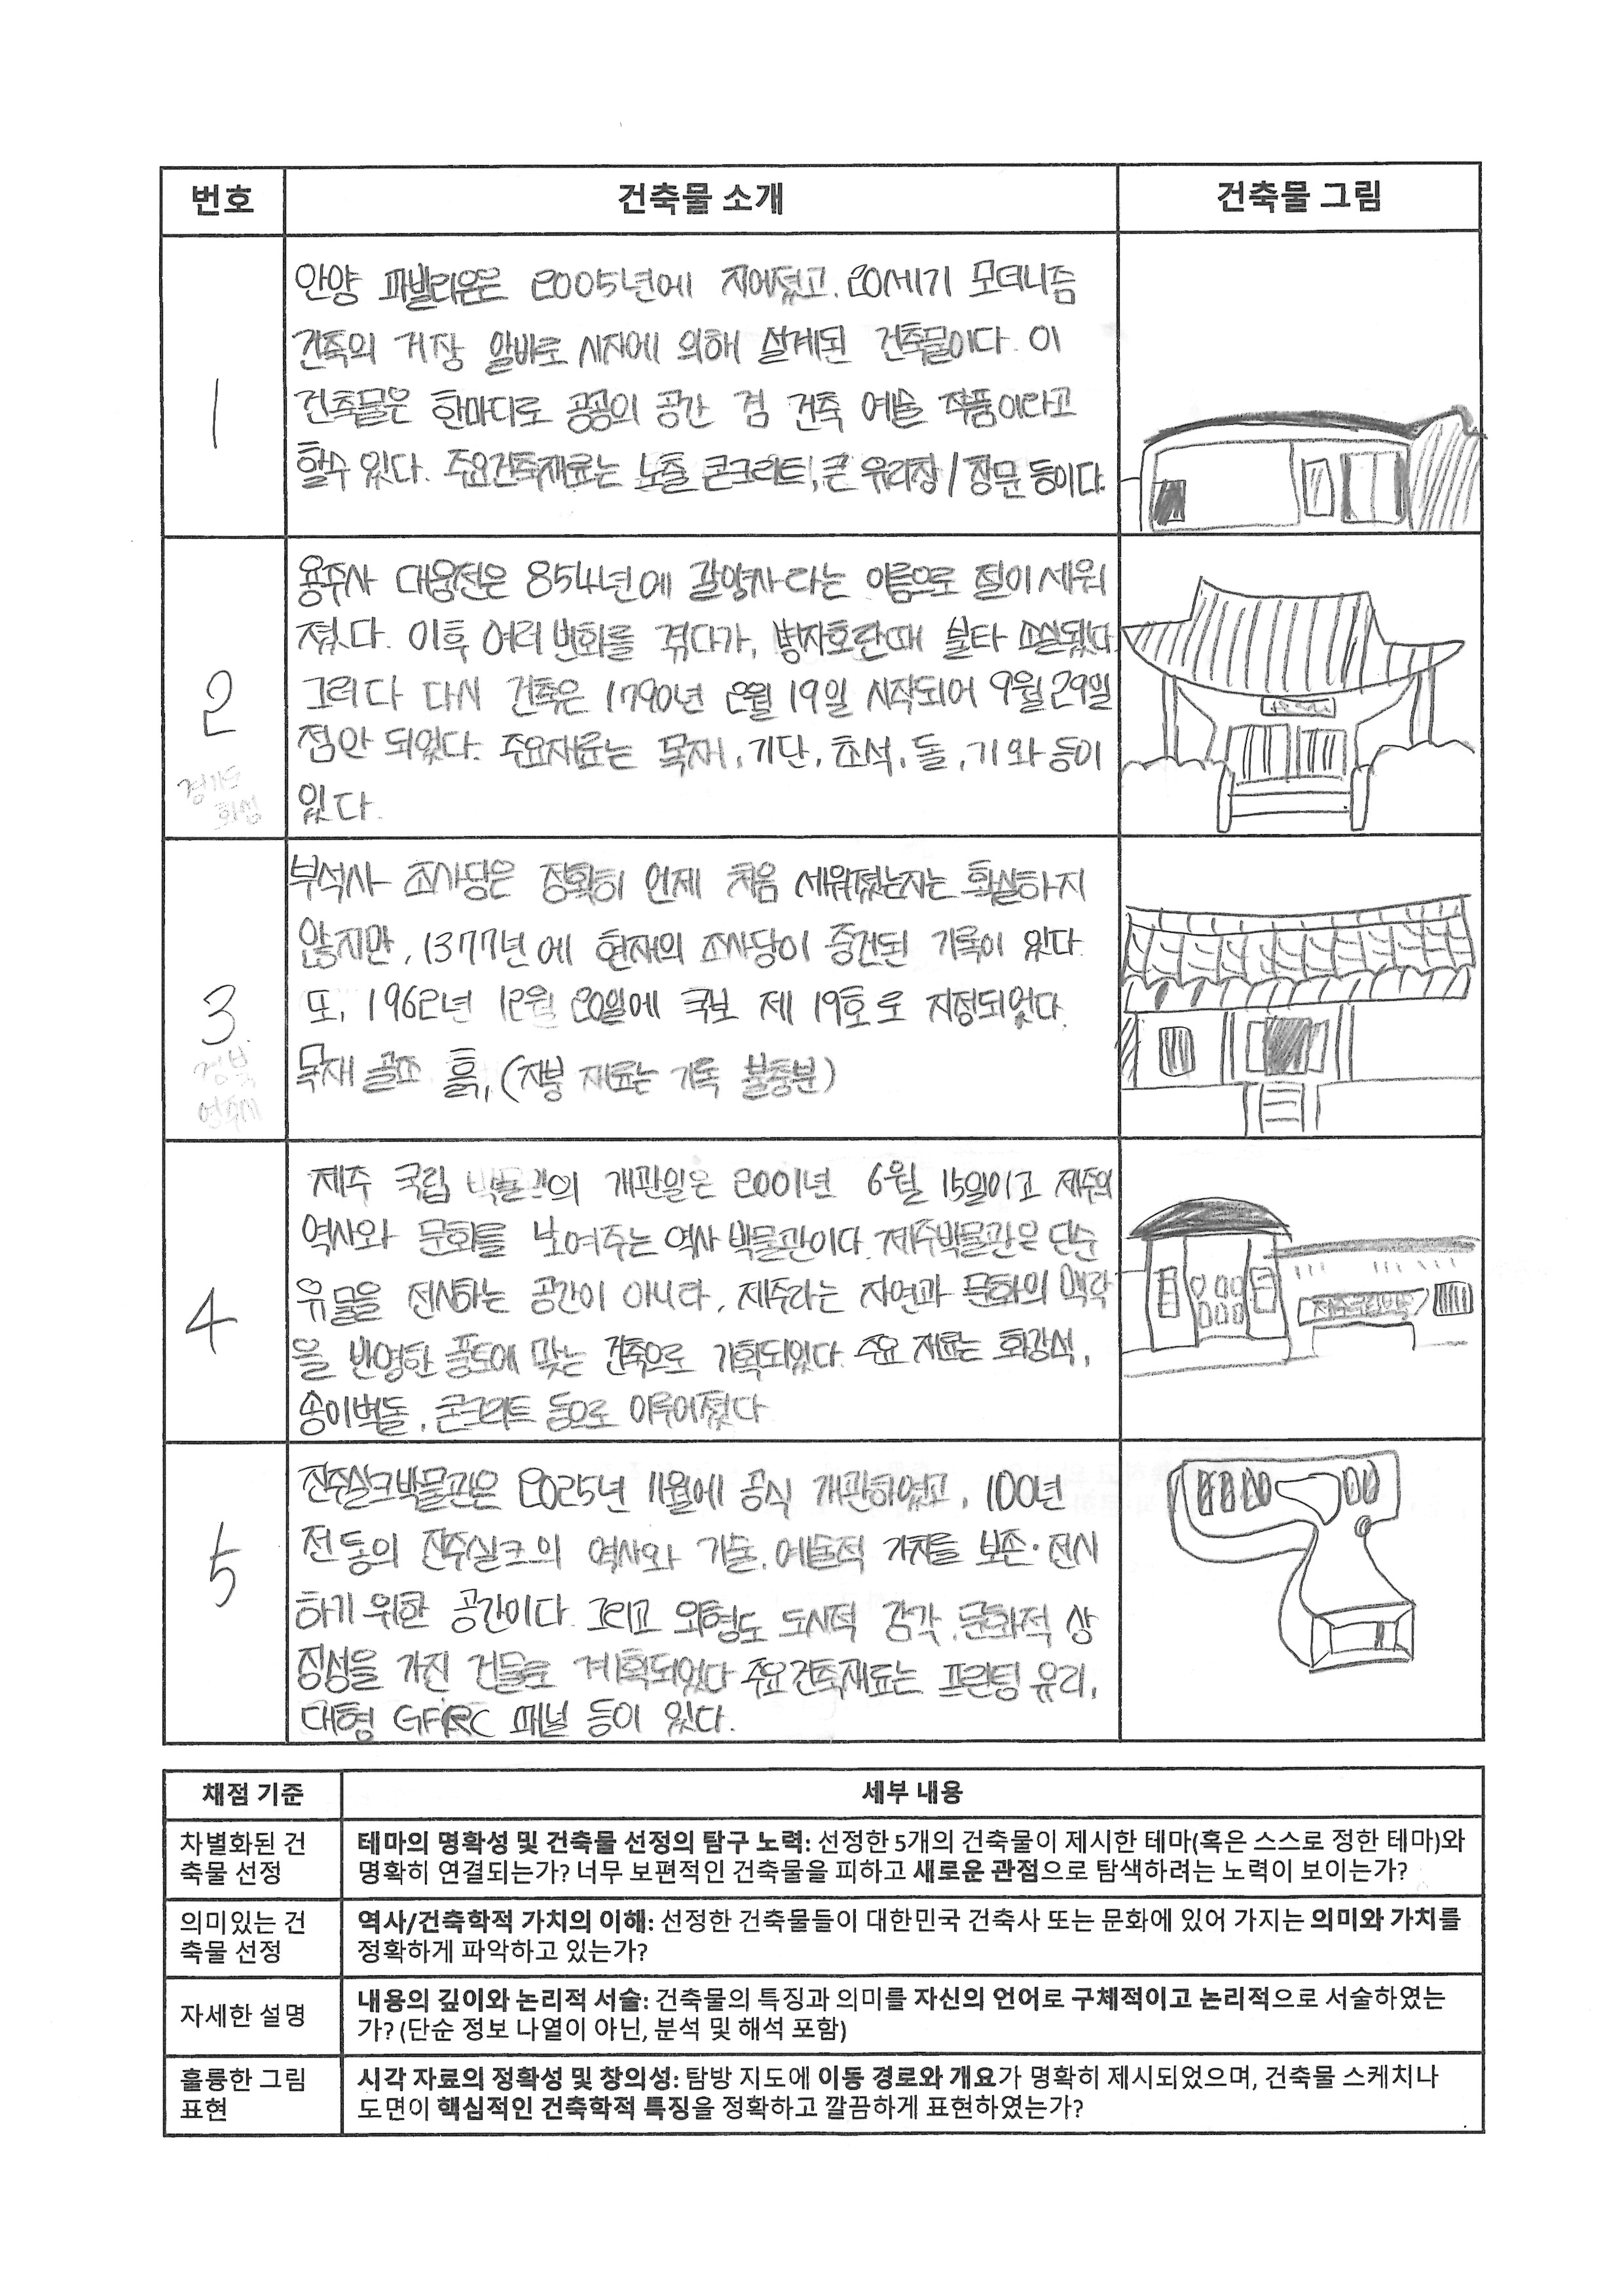 번호 건축물 소개 건축물 그림
1
안양 파빌리온은 2005년에 지어졌고. 20세기 모더니즘
건축의 거장 알바로 시자에 의해 설계된 건축물이다. 이
건축물은 한마디로 공공의 공간 겸 건축 예술 작품이라고
할수 있다. 주요건축재료는 노출 콘크리트, 큰 유리창 / 창문 등이다.
2
경기도
화성
용주사 대웅전은 854년에 갈양사라는 이름으로 절이 세워
졌다. 이후 여러 변화를 겪다가, 병자호란때 불타 소실됐다.
그러다 다시 건축은 1790년 2월 19일 시작되어 9월 29일
점안 되었다. 주요재료는 목재, 기단, 초석, 돌, 기와 등이
있다.
3
경북
영주시
부석사 조사당은 정확히 언제 처음 세워졌는지는 확실하지
않지만, 1377년에 현재의 조사당이 중건된 기록이 있다.
또, 1962년 12월 20일에 국보 제 19호로 지정되었다.
목재 골조 흙, (지붕 재료는 기록 불충분)
4
제주 국립 박물관의 개관일은 2001년 6월 15일이고 제주의
역사와 문화를 보여주는 역사 박물관이다. 제주박물관은 단순
유물을 전시하는 공간이 아니라, 제주라는 자연과 문화의 맥락
을 반영한 풍토에 맞는 건축으로 기획되었다. 주요 재료는 화강석,
송이벽돌, 콘크리트 등으로 이루어졌다
5
진주실크박물관은 2025년 11월에 공식 개관하였고, 100년
전통의 진주실크의 역사와 기술, 예술적 가치를 보존·전시
하기 위한 공간이다. 그리고 외형도 도시적 감각, 문화적 상
징성을 가진 건물로 계획되었다 주요건축재료는 프린팅 유리,
대형 GFRC 패널 등이 있다.
채점 기준 세부 내용
차별화된 건
축물 선정
테마의 명확성 및 건축물 선정의 탐구 노력: 선정한 5개의 건축물이 제시한 테마(혹은 스스로 정한 테마)와
명확히 연결되는가? 너무 보편적인 건축물을 피하고 새로운 관점으로 탐색하려는 노력이 보이는가?
의미있는 건
축물 선정
역사/건축학적 가치의 이해: 선정한 건축물들이 대한민국 건축사 또는 문화에 있어 가지는 의미와 가치를
정확하게 파악하고 있는가?
자세한 설명
내용의 깊이와 논리적 서술: 건축물의 특징과 의미를 자신의 언어로 구체적이고 논리적으로 서술하였는
가? (단순 정보 나열이 아닌, 분석 및 해석 포함)
훌륭한 그림
표현
시각 자료의 정확성 및 창의성: 탐방 지도에 이동 경로와 개요가 명확히 제시되었으며, 건축물 스케치나
도면이 핵심적인 건축학적 특징을 정확하고 깔끔하게 표현하였는가?